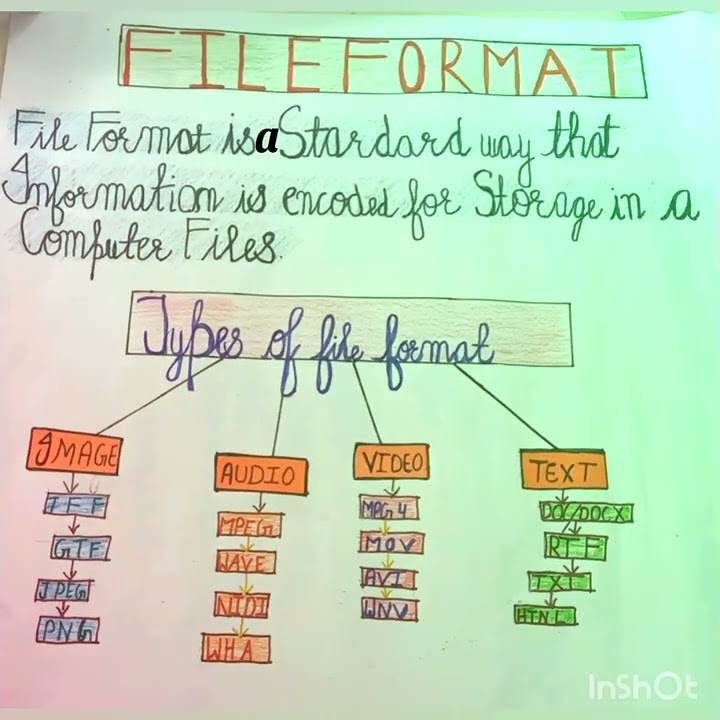 FILE FORMAT
File Format is a Standard way that
Information is encoded for Storage in a
Computer Files.
Types of file format
IMAGE
IFF
GTF
JPEG
PNG
AUDIO
MPEG
WAVE
NIDI
WHA
VIDEO
MPG4
MOV
AVI
WNV
TEXT
DOC/DOCX
RTF
TXT
HTNL
InShOt